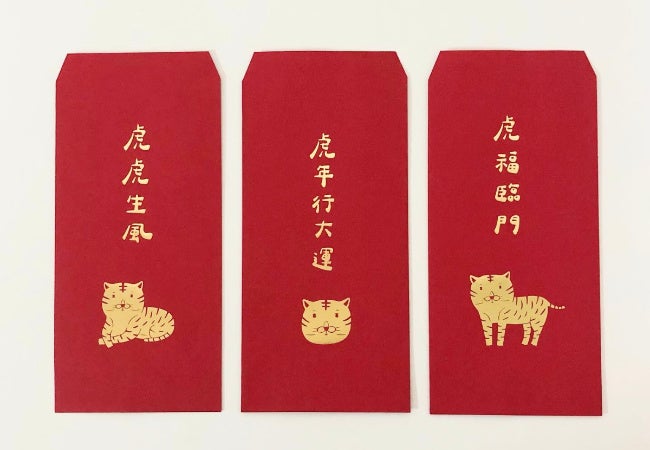 虎虎生風
虎年行大運
虎福臨門